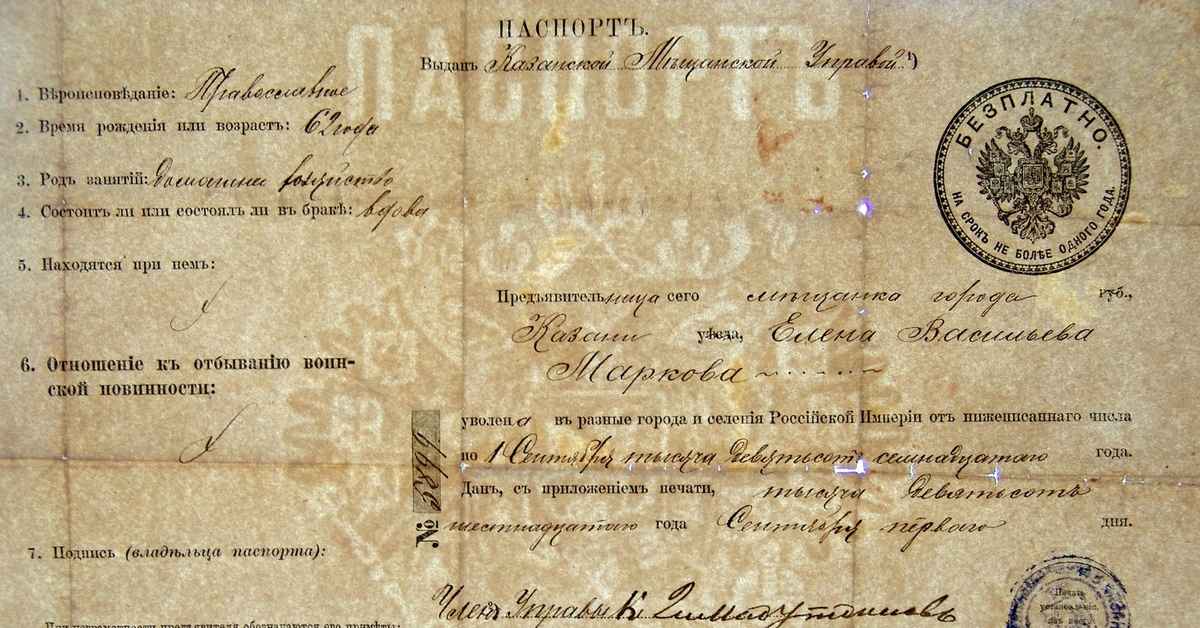 ПАСПОРТЪ.
Выданъ Казанской Мѣщанской Управой ¹)
1. Вѣроисповѣданіе: Православное
2. Время рожденія или возрастъ: 62 года
3. Родъ занятій: домашнее хозяйство
4. Состоитъ ли или состоялъ ли въ бракѣ: вдова
5. Находятся при немъ:
6. Отношеніе къ отбыванію воин-
ской повинности:
7. Подпись (владѣльца паспорта):
При неграмотности предъявителя обозначаются его примѣты:
БЕЗПЛАТНО.
НА СРОКЪ НЕ БОЛѢЕ ОДНОГО ГОДА.
Предъявительница сего мѣщанка города губ.,
Казани уѣзда, Елена Васильева
Маркова
уволена въ разные города и селенія Россійской Имперіи отъ нижеписаннаго числа
по 1 Сентября тысяча девятьсотъ семнадцатаго года.
Данъ, съ приложеніемъ печати, тысяча девятьсотъ
шестнадцатаго года Сентября перваго дня.
№ 6899
Членъ Управы
Печать
установленія,